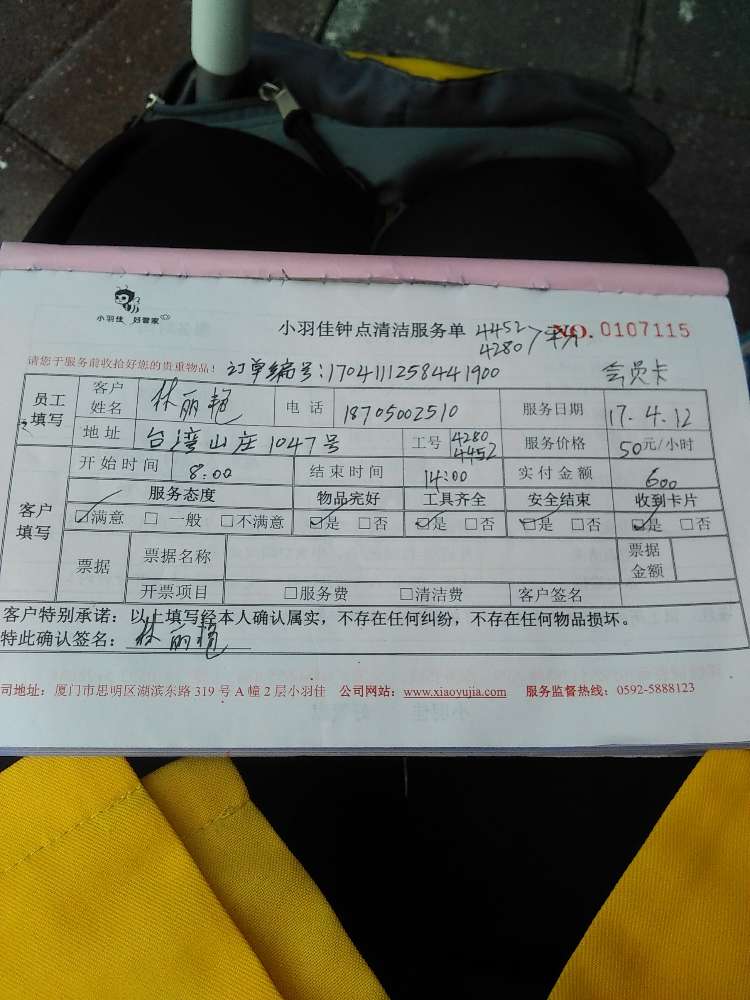 小羽佳 好管家
小羽佳钟点清洁服务单 4452 4280 平分 NO. 0107115
请您于服务前收拾好您的贵重物品! 订单编号:1704111258441900 会员卡
员工填写 客户姓名 林丽艳 电话 18705002510 服务日期 17.4.12
地址 台湾山庄1047号 工号 4280 4452 服务价格 50元/小时
客户填写 开始时间 8:00 结束时间 14:00 实付金额 600
服务态度 物品完好 工具齐全 安全结束 收到卡片
☑满意 □一般 □不满意 ☑是 □否 ☑是 □否 ☑是 □否 ☑是 □否
票据 票据名称 票据金额
开票项目 □服务费 □清洁费 客户签名
客户特别承诺：以上填写经本人确认属实，不存在任何纠纷，不存在任何物品损坏。
特此确认签名：林丽艳
司地址：厦门市思明区湖滨东路319号A幢2层小羽佳 公司网站：www.xiaoyujia.com 服务监督热线：0592-5888123